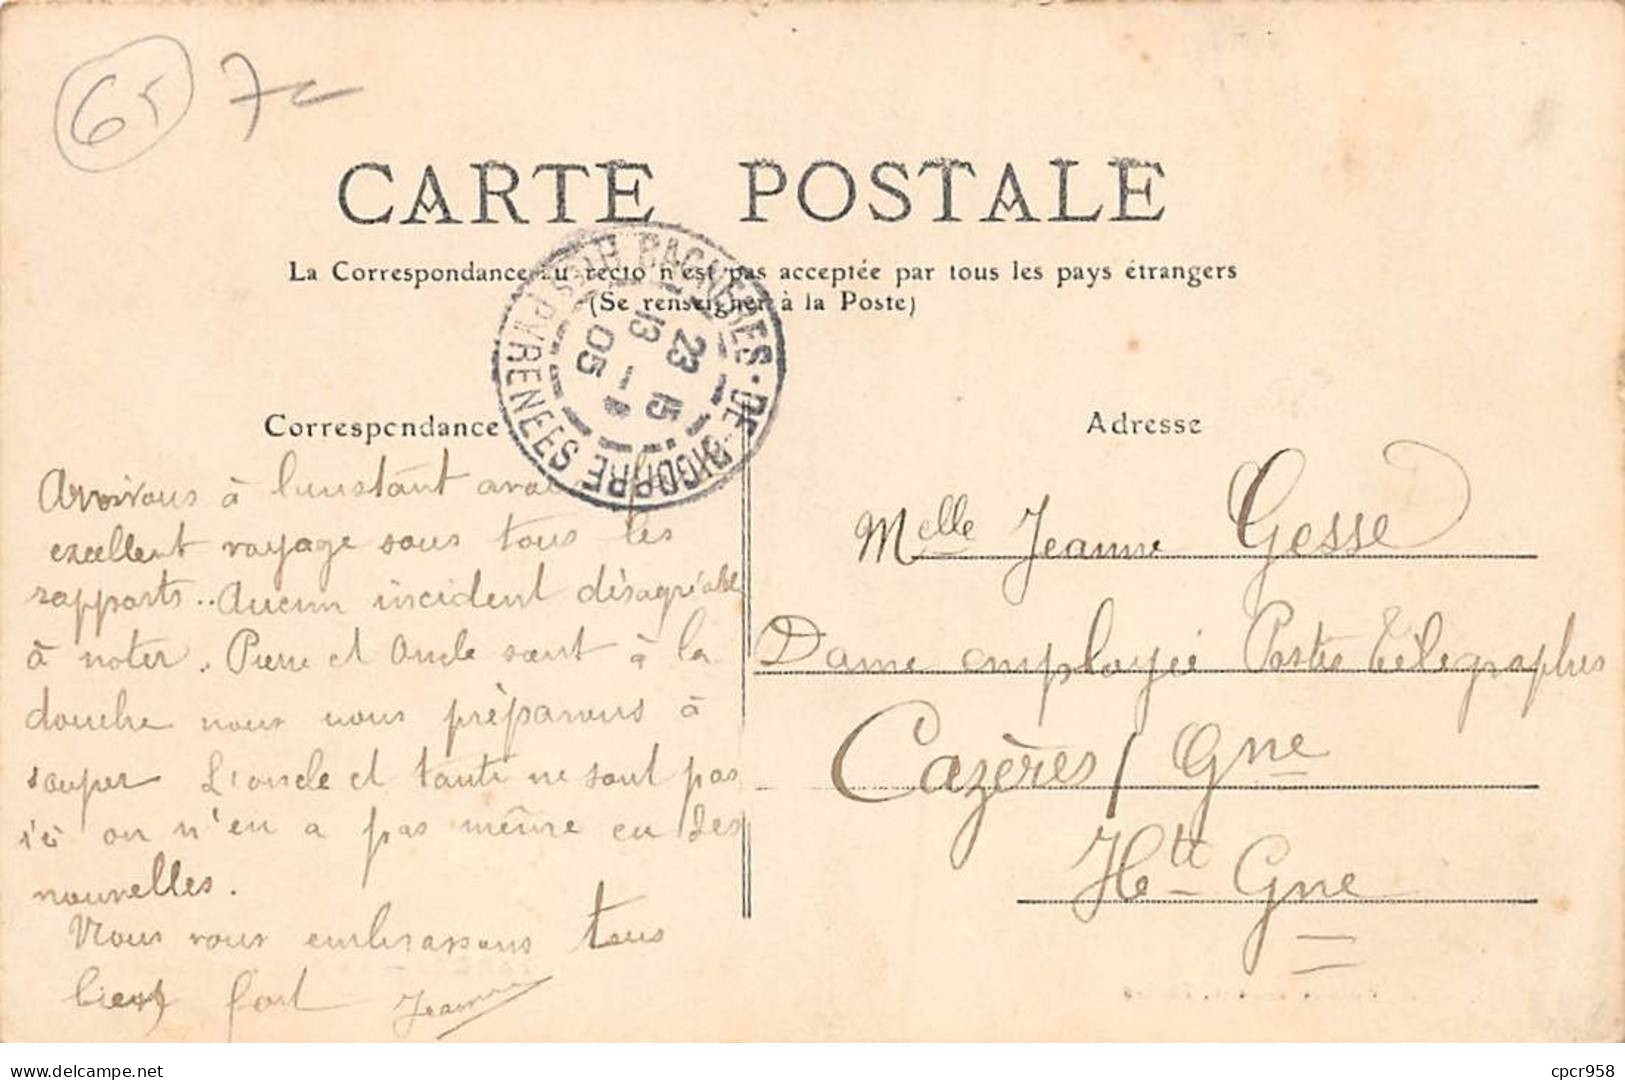 65 7c
CARTE POSTALE
La Correspondance au recto n'est pas acceptée par tous les pays étrangers
(Se renseigner à la Poste)
BAGNERES-DE-BIGORRE HTES PYRENEES
23 15
13 - 1
05
Correspondance
Arrivons à l'instant avons
excellent voyage sous tous les
rapports.. Aucun incident désagréable
à noter. Pierre et Oncle sont à la
douche nous nous préparons à
souper L'oncle et tante ne sont pas
ici on n'en a pas même eu des
nouvelles.
Nous vous embrassons tous
bien fort Jeanne
Adresse
Melle Jeanne Gesse
Dame employée Postes Télégraphes
Cazères / Gne
Hte Gne
delcampe.net
cpcr958